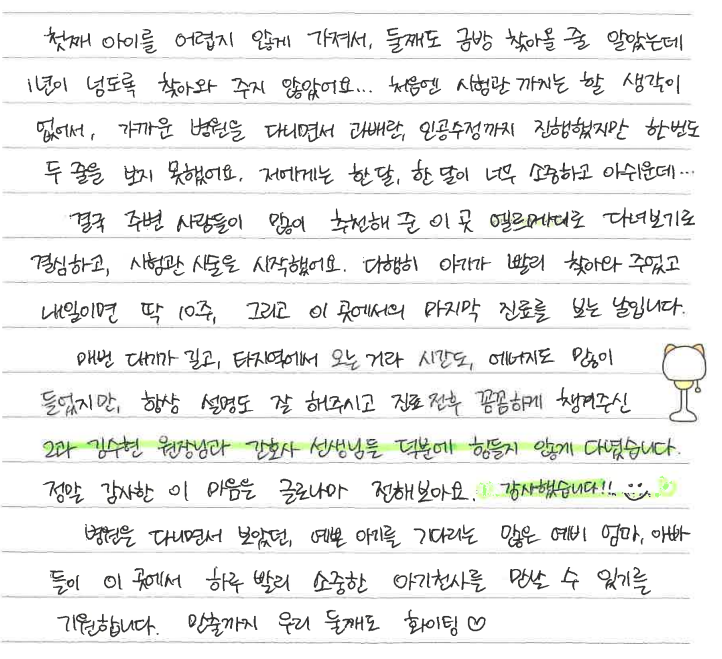 첫째 아이를 어렵지 않게 가져서, 둘째도 금방 찾아올 줄 알았는데
1년이 넘도록 찾아와 주지 않았어요... 처음엔 시험관 까지는 할 생각이
없어서, 가까운 병원을 다니면서 과배란, 인공수정까지 진행했지만 한번도
두 줄을 보지 못했어요. 저에게는 한달, 한 달이 너무 소중하고 아쉬운데...
결국 주변 사람들이 많이 추천해 준 이 곳 엘르메디로 다녀보기로
결심하고, 시험관 시술을 시작했어요. 다행히 아기가 빨리 찾아와 주었고
내일이면 딱 10주, 그리고 이 곳에서의 마지막 진료를 보는 날입니다.
매번 대기가 길고, 타지역에서 오는 거라 시간도, 에너지도 많이
들었지만, 항상 설명도 잘 해주시고 진료 전후 꼼꼼하게 챙겨주신
2과 김수현 원장님과 간호사 선생님들 덕분에 힘들지 않게 다녔습니다.
정말 감사한 이 마음을 글로나마 전해보아요. 감사했습니다!!
병원을 다니면서 보았던, 예쁜 아기를 기다리는 많은 예비 엄마, 아빠
들이 이 곳에서 하루 빨리 소중한 아기천사를 만날 수 있기를
기원합니다. 만출까지 우리 둘째도 화이팅 ♡